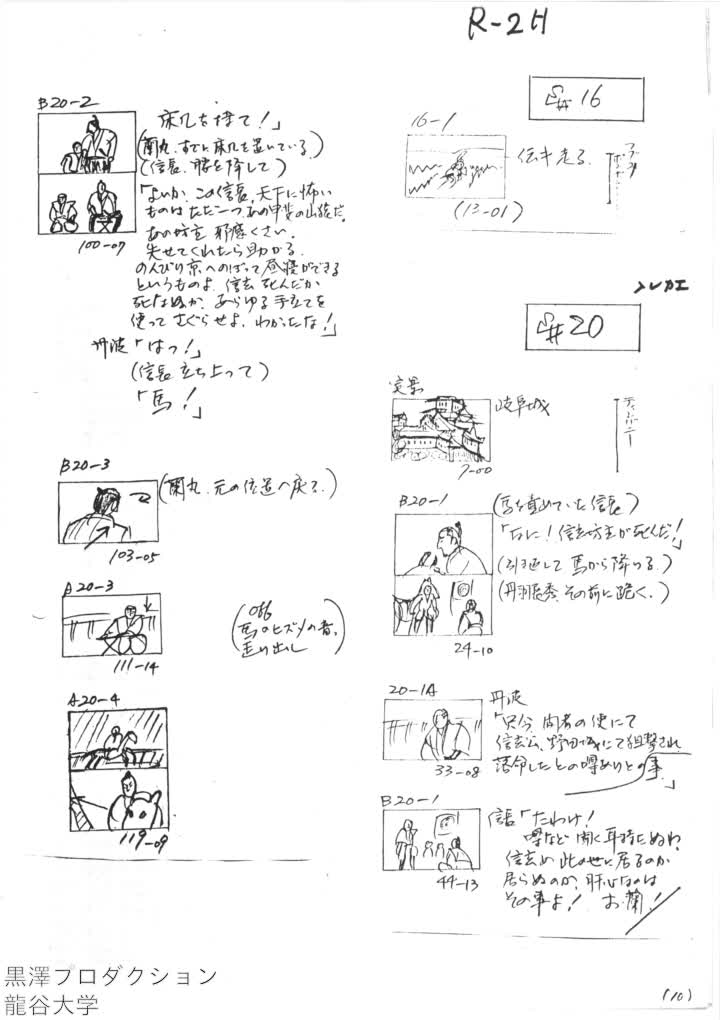 R-2H
S# 16
16-1
伝令走る
(13-01)
S# 20
実景
岐阜城
7-00
B20-1
(馬を責めていた信長)
「なに！信玄坊主が死んだ！」
(引返して馬から降りる。)
(丹羽長秀、その前に跪く。)
24-10
20-1A
丹波
「只今 間者の使にて
信玄公、野田城にて狙撃され
落命したとの噂ありとの事。」
33-08
B20-1
信長「たわけ！
噂など聞く耳持たぬわ
信玄め 此の世に居るのか
居らぬのか、肝心なのは
その事よ！ お蘭！
44-13
B20-2
床几を持て！」
(蘭丸、すでに床几を置いている。)
(信長、腰を降して)
「よいか、この信長、天下に怖い
ものはただ一つ、あの甲斐の山猿だ。
あの坊主 邪魔くさい。
失せてくれたら助かる。
のんびり京へのぼって昼寝ができる
というものよ。信玄 死んだか
死なぬか、あらゆる手立てを
使って さぐらせよ、わかったな！」
100-07
丹波「はっ！」
(信長 立ち上って)
「馬！」
B20-3
(蘭丸、元の位置へ戻る。)
103-05
A20-3
(off
馬のヒズメの音。
走り出し)
111-14
A20-4
119-09
黒澤プロダクション
龍谷大学
(10)